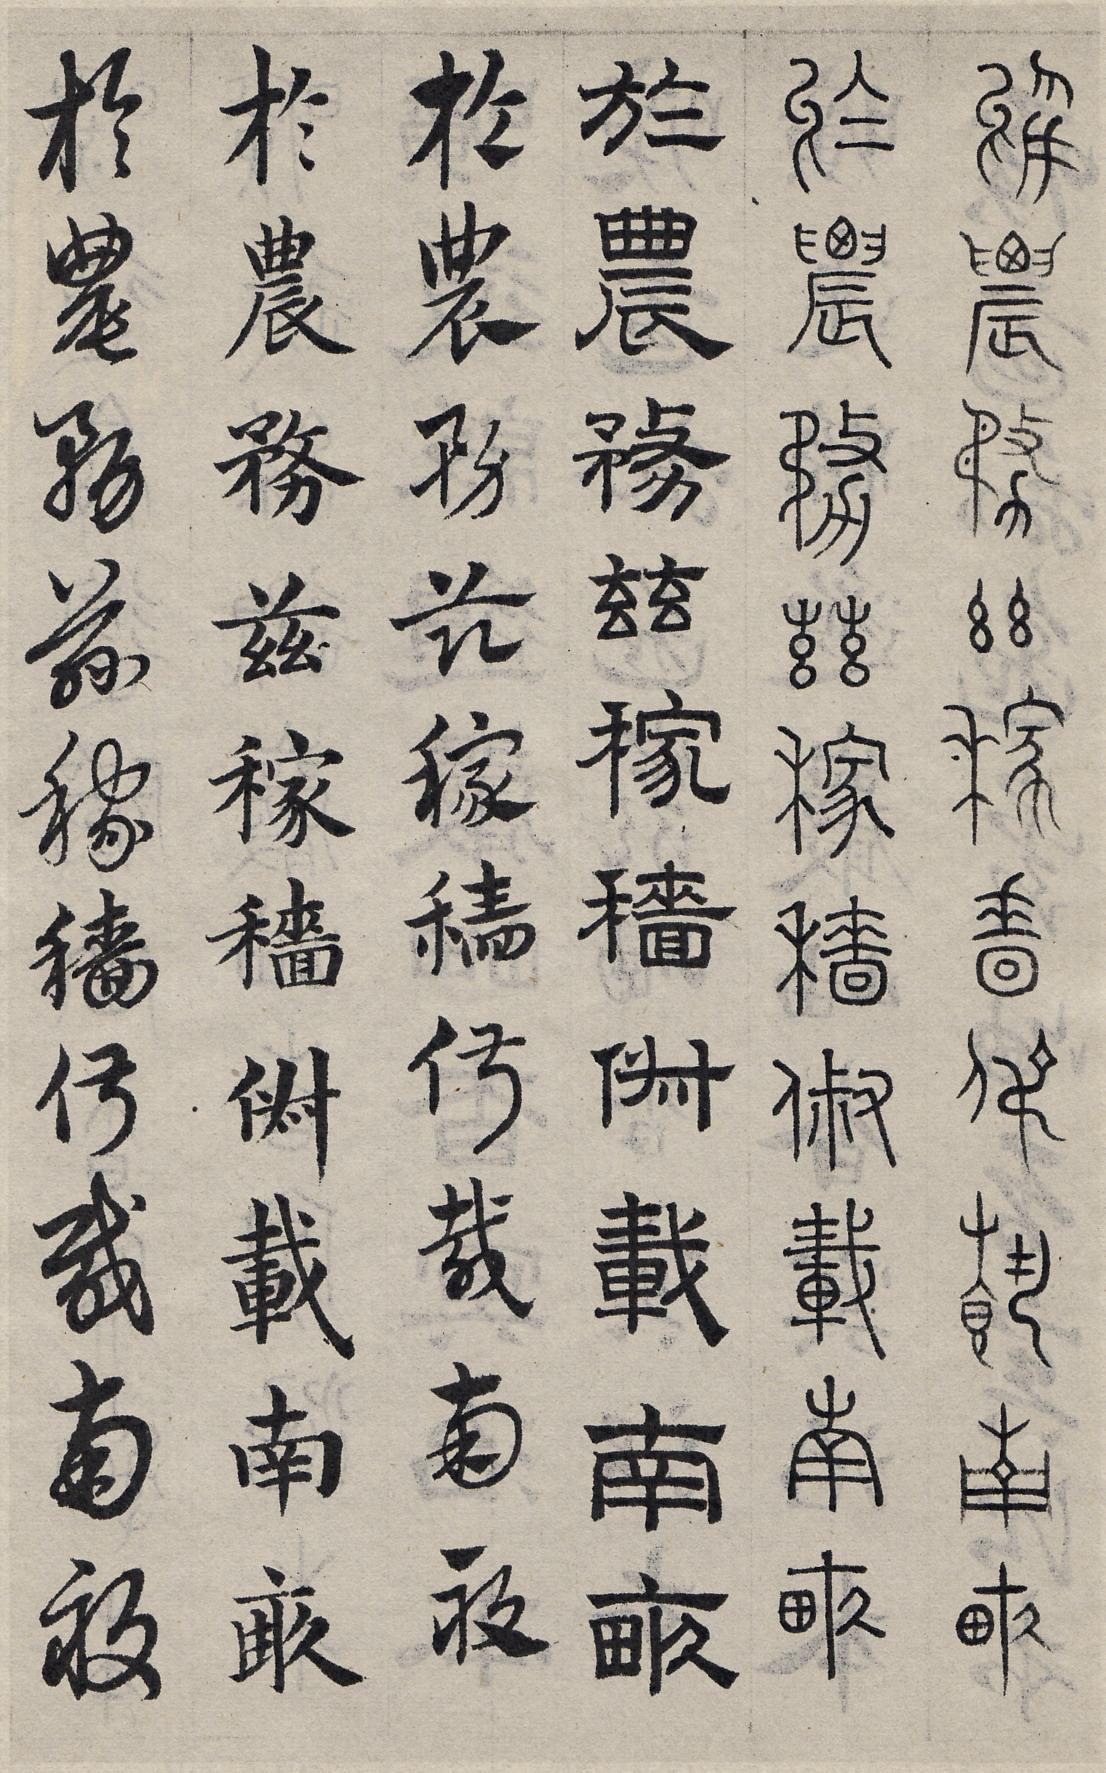 於農務兹稼穡俶載南畝
於農務兹稼穡俶載南畝
於農務茲稼穡俶載南畝
於農務茲稼穡俶載南畝
於農務茲稼穡俶載南畝
於農務茲稼穡俶載南畝